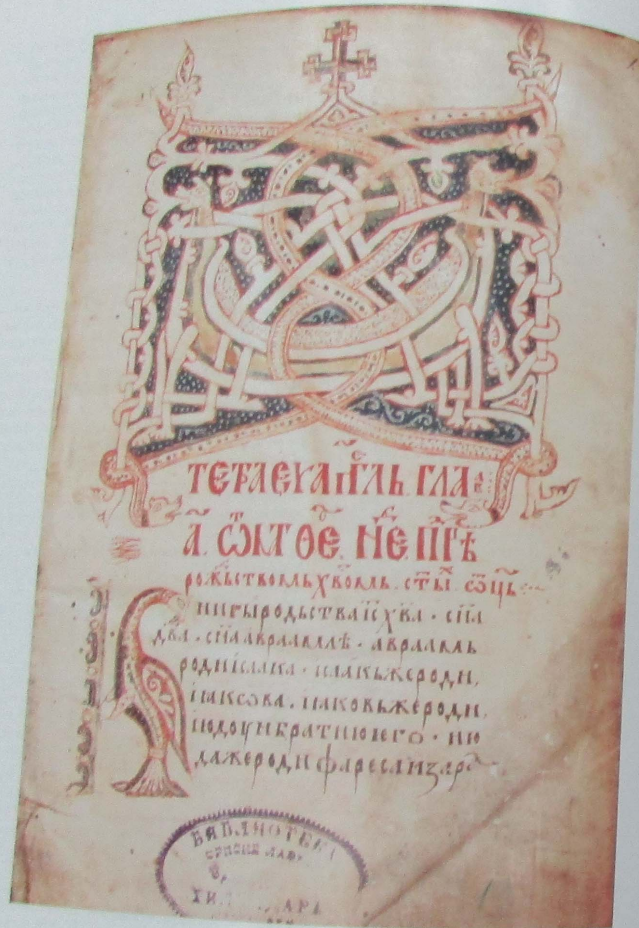 ТЕТРАЕѴАГГЛЬ. ГЛА
А. ѾМТѲЕ. НЕ. ПРѢ
рожьствомьхвомь. стыⷯ. ѿць
нигыродьстваісхва. сна
двда. снаавраамлѣ. авраамь
родиісака. ісакьжероди,
іакѡва. іаковьжероди,
июдоуибратиюѥго. ию
дажеродифаресаизар
БИБЛИОТЕКА
СРПСКЕ ЛАВ
ХИЛАНДАРА